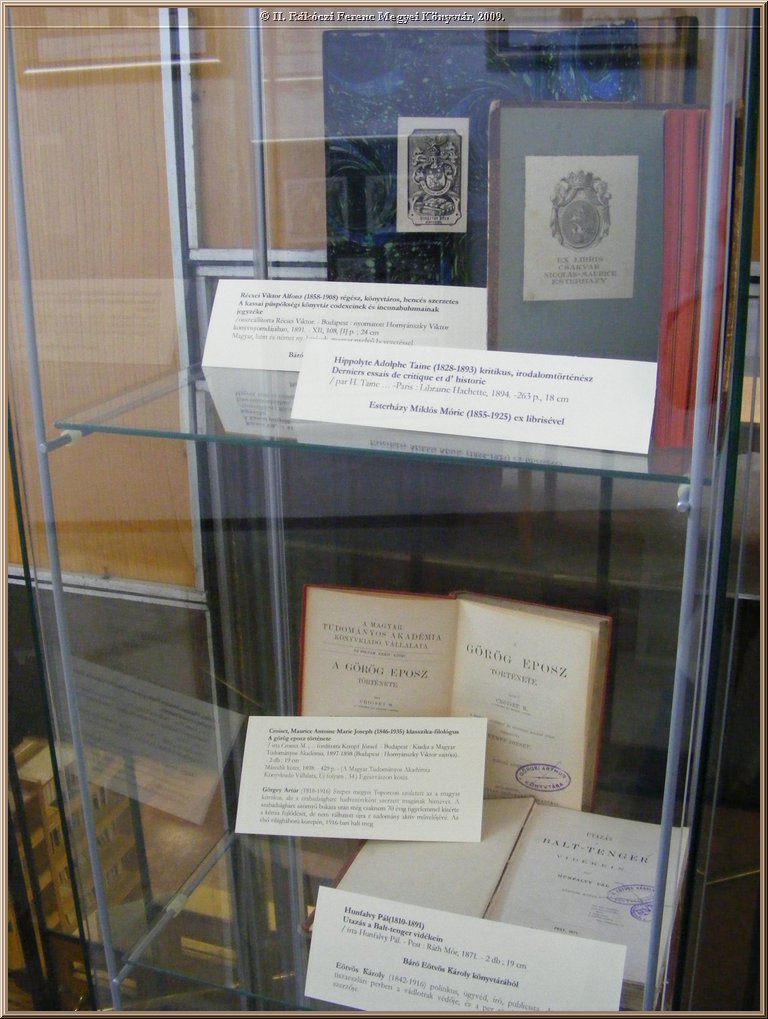 © II. Rákóczi Ferenc Megyei Könyvtár, 2009.
EX LIBRIS
CSAKVAR
NICOLAS-MAURICE
ESTERHAZY
Récsei Viktor Alfonz (1858-1908) régész, könyvtáros, bencés szerzetes
A kassai püspökségi könyvtár codexeinek és incunabulumainak
jegyzéke
/összeállította Récsei Viktor. - Budapest : nyomatott Hornyánszky Viktor
könyvnyomdájában, 1891. - XII, 108, [1] p. ; 24 cm
Magyar, latin és német
Báró
Hippolyte Adolphe Taine (1828-1893) kritikus, irodalomtörténész
Derniers essais de critique et d' historie
/ par H. Taine ... -Paris : Librairie Hachette, 1894. -263 p., 18 cm
Esterházy Miklós Móric (1855-1925) ex librisével
A MAGYAR
TUDOMÁNYOS AKADÉMIA
KÖNYVKIADÓ VÁLLALATA
A GÖRÖG EPOSZ
TÖRTÉNETE
CROISET M.
A
GÖRÖG EPOSZ
TÖRTÉNETE
CROISET M.
GÖRGEI ARTHUR
Croiset, Maurice Antoine Marie Joseph (1846-1935) klasszika-filológus
A görög eposz története
/ írta Croiset M. ; fordította Kempf József. - Budapest : Kiadja a Magyar
Tudományos Akadémia, 1897-1898 (Budapest : Hornyánszky Viktor sajtója).
- 2 db ; 19 cm
Második kötet, 1898. - 429 p. - (A Magyar Tudományos Akadémia
Könyvkiadó Vállalata, Új folyam ; ) Egészvászon kötés
Görgey Artúr (1818-1916) Szepes megyei Toporcon született az a magyar
kémikus, aki a szabadságharc hadvezéreként szerzett magának hírnevet. A
szabadságharc szomorú bukása után még csaknem 70 évig figyelemmel kísérte
a kémia fejlődését, de nem válhatott újra e tudomány aktív művelőjévé. Az
első világháború közepén, 1916-ban halt meg
UTAZÁS
A
BALT-TENGER
VIDÉKEIN
HUNFALVY PÁL
PEST, 1871.
Hunfalvy Pál(1810-1891)
Utazás a Balt-tenger vidékein
/ írta Hunfalvy Pál. - Pest : Ráth Mór, 1871. - 2 db ; 19 cm
Báró Eötvös Károly könyvtárából
Eötvös Károly (1842-1916) politikus, ügyvéd, író, publicista.
tiszaeszlári perben a vádlottak védője, és a per
szerzője.